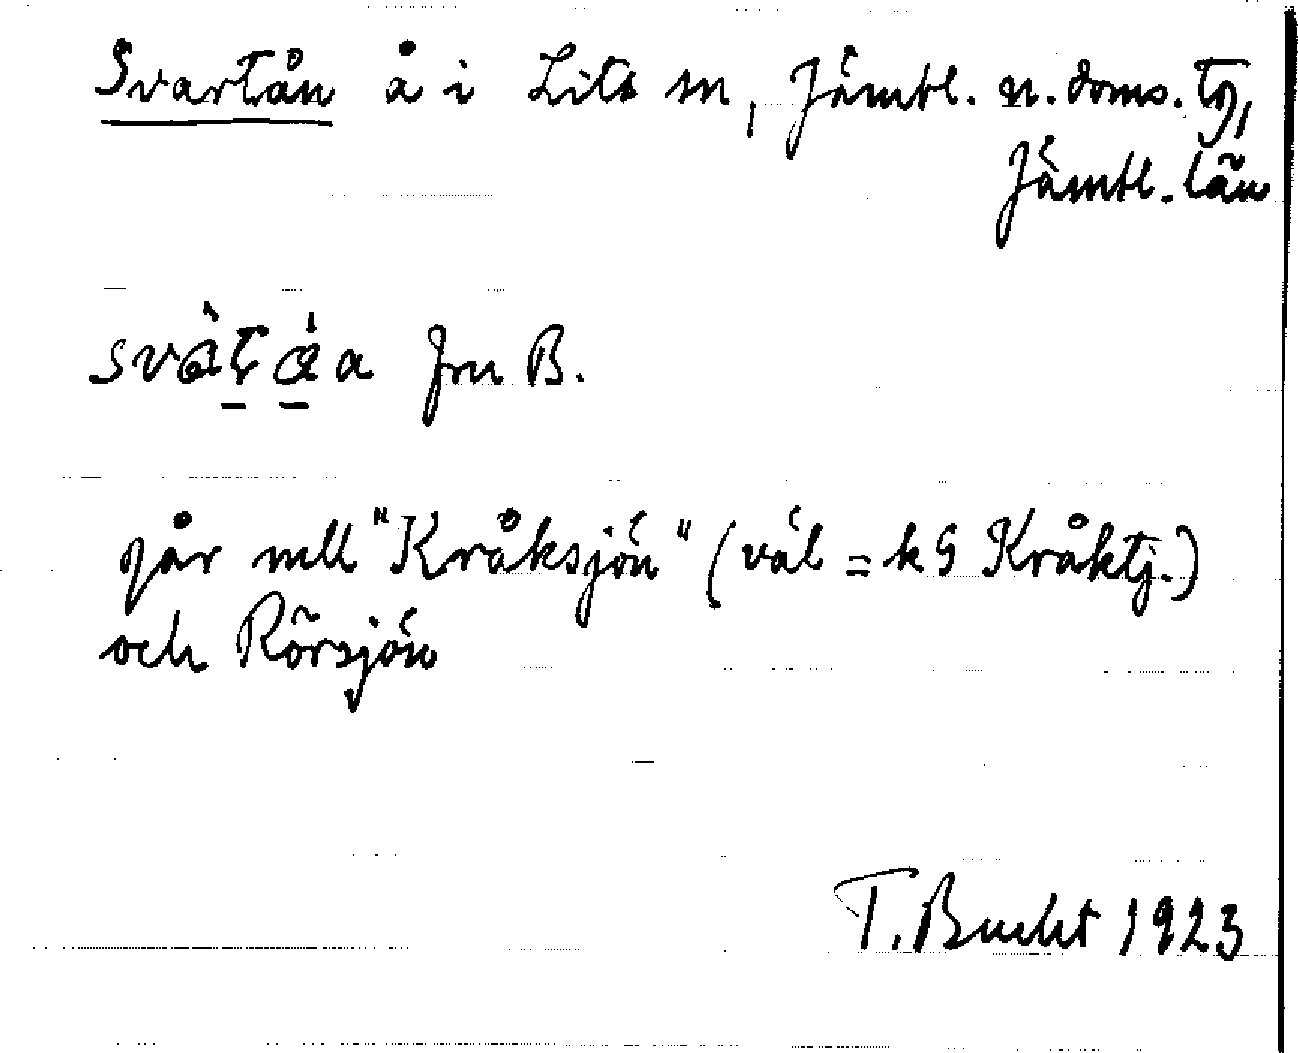 Svartån å i Lits sn, Jämtl. n. doms. tg,
Jämtl. län
svàt áa fru B.
går mll "Kråksjön" (väl = k G Kråktj.)
och Rörsjön
T. Bucht 1923